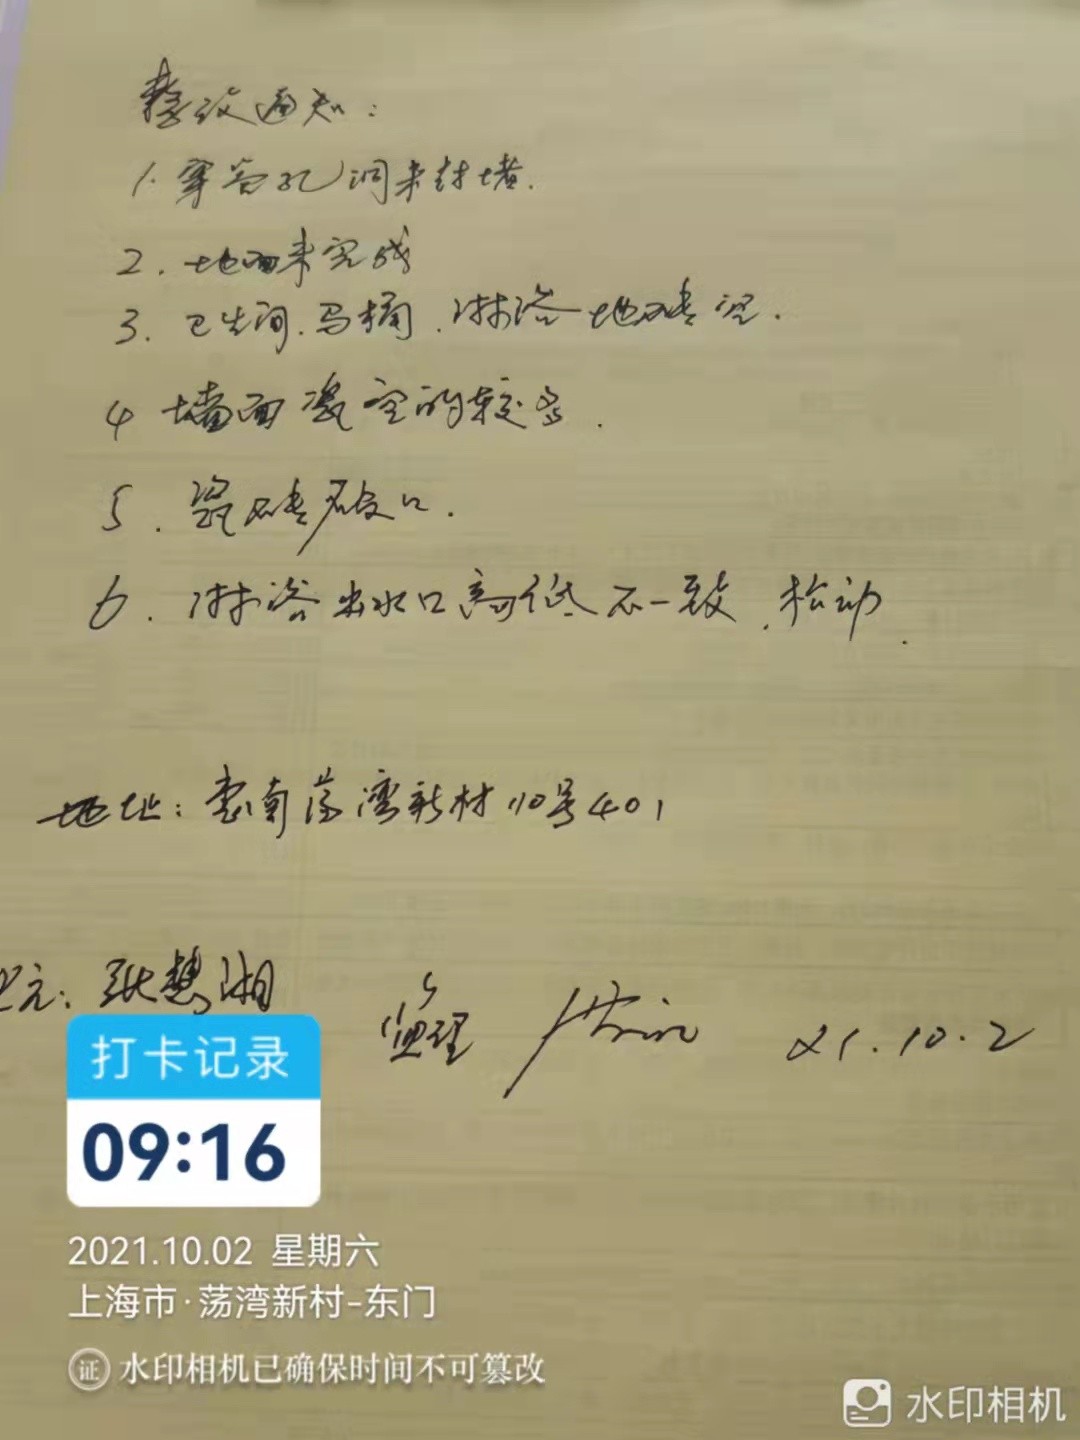 整改通知：
1. 穿管孔洞未封堵.
2. 地面未完成
3. 卫生间.马桶.淋浴地砖空.
4 墙面瓷空的较多.
5. 瓷砖破口.
6. 淋浴出水口高低不一致.松动.
地址：娄南荡湾新村110号401
张慧湖
监理 21.10.2
打卡记录
09:16
2021.10.02 星期六
上海市·荡湾新村-东门
证 水印相机已确保时间不可篡改
水印相机